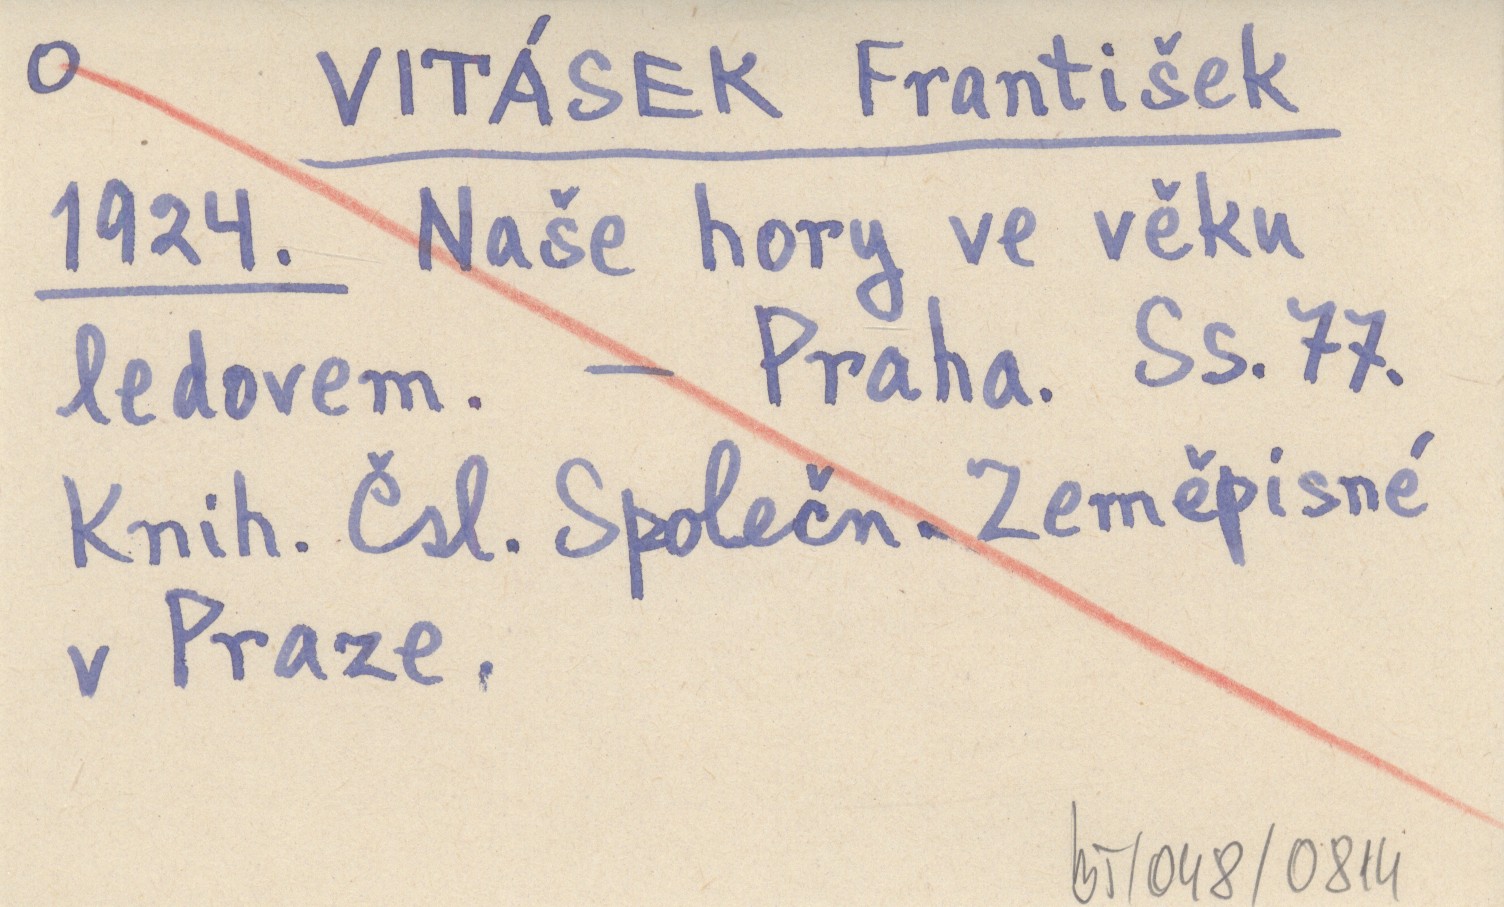 O VITÁSEK František
1924. Naše hory ve věku
ledovem. — Praha. Ss. 77.
Knih. Čsl. Společn. Zeměpisné
v Praze.
/048/0814